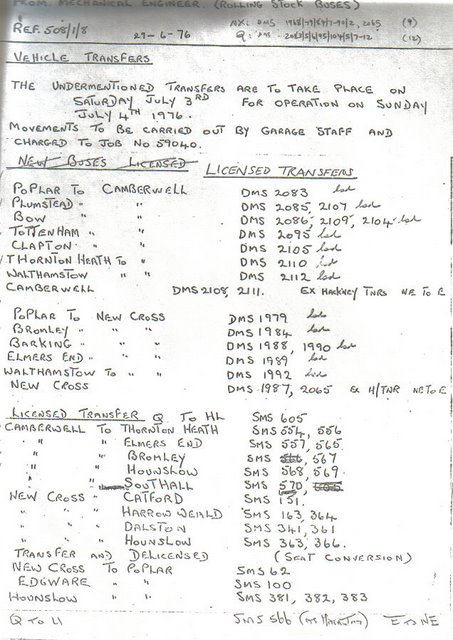 FROM MECHANICAL ENGINEER. (ROLLING STOCK BUSES)
REF. 508/1/8 29-6-76 NX: DMS 1968/79/84/7-90/2, 2065 (9)
Q: DMS 2083/5/6/95/104/5/7-12 (12)
VEHICLE TRANSFERS
THE UNDERMENTIONED TRANSFERS ARE TO TAKE PLACE ON
SATURDAY JULY 3RD FOR OPERATION ON SUNDAY
JULY 4TH 1976.
MOVEMENTS TO BE CARRIED OUT BY GARAGE STAFF AND
CHARGED TO JOB NO 59040.
NEW BUSES LICENSED LICENSED TRANSFERS
POPLAR TO CAMBERWELL DMS 2083 lsd
PLUMSTEAD " " DMS 2085, 2107 lsd
BOW " " DMS 2086, 2109, 2104 lsd
TOTTENHAM " " DMS 2095 lsd
CLAPTON " " DMS 2105 lsd
THORNTON HEATH TO " DMS 2110 lsd
WALTHAMSTOW " " DMS 2112 lsd
CAMBERWELL DMS 2108, 2111. EX HACKNEY TNRS NE TO E
POPLAR TO NEW CROSS DMS 1979 lsd
BROMLEY " " " DMS 1984 lsd
BARKING " " " DMS 1988, 1990 lsd
ELMERS END " " " DMS 1989 lsd
WALTHAMSTOW TO " " DMS 1992 lsd
NEW CROSS DMS 1987, 2065 EX H/TNR NE TO E
LICENSED TRANSFER Q TO HL SMS 605
CAMBERWELL TO THORNTON HEATH SMS 554, 556
" " ELMERS END SMS 557, 565
" " BROMLEY SMS 566, 567
" " HOUNSLOW SMS 568, 569
" SOUTHALL SMS 570, 605
NEW CROSS " CATFORD SMS 151.
" " " HARROW WEALD SMS 163, 364
" " " DALSTON SMS 341, 361
" " " HOUNSLOW SMS 363, 366.
TRANSFER AND DELICENSED (SEAT CONVERSION)
NEW CROSS TO POPLAR SMS 62
EDGWARE " " SMS 100
HOUNSLOW " " SMS 381, 382, 383
Q TO U SMS 566 E TO NE